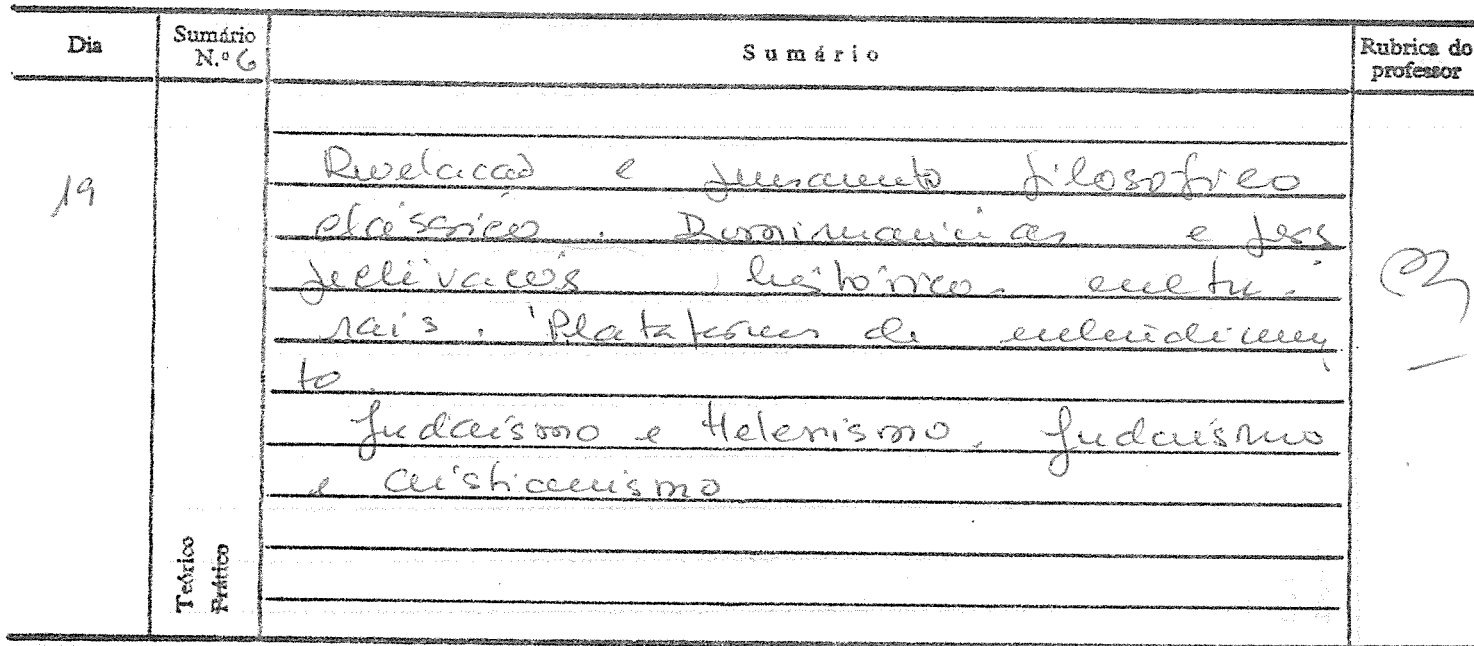 Dia
Sumário N.º 6
Sumário
Rubrica do professor
19
Revelação e pensamento filosófico
clássico. e pers
pectivações histórico-cultu-
rais. Plataforma de entendimen
to.
Judaísmo e Helenismo. Judaísmo
e Cristianismo
Teórico
Prático